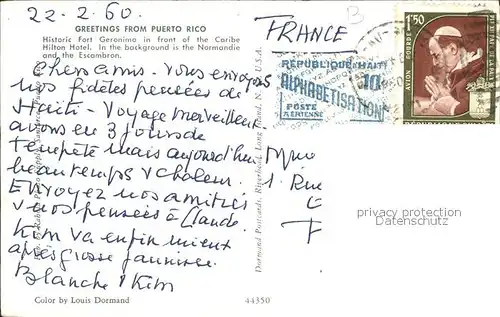 22.2.60.
GREETINGS FROM PUERTO RICO
Historic Fort Geronimo in front of the Caribe
Hilton Hotel. In the background is the Normandie
and the Escambron.
Chers amis - Vous envoyons
nos fidèles pensées de
Haïti - Voyage merveilleux
avons eu 3 jours de
tempête mais aujourd'hui
beau temps & chaleur.
Envoyez nos amitiés
& nos pensées à Claude.
Kim va enfin mieux
après grosse jaunisse.
Blanche & Kim
Color by Louis Dormand
44350
Dormand Postcards, Riverhead, Long Island, N. Y., U.S.A.
FRANCE
RÉPUBLIQUE D'HAITI
10c
ALPHABETISATION
POSTE
AERIENNE
1,50
GOURDE
AVION
Rue
F
privacy protection
Datenschutz